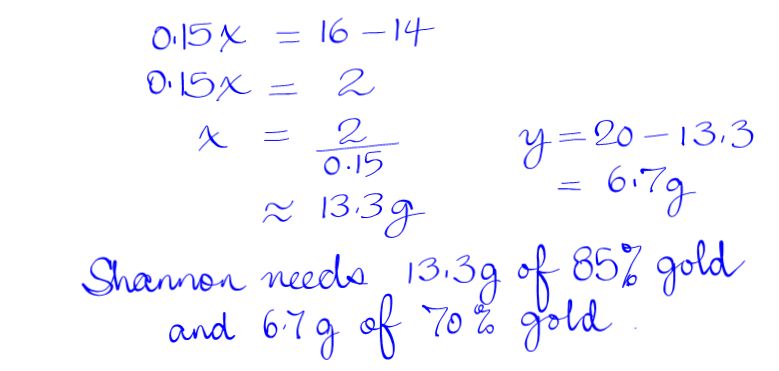 0.15x = 16 - 14
0.15x = 2
x = 2/0.15
y = 20 - 13.3
≈ 13.3g
= 6.7g
Shannon needs 13.3g of 85% gold
and 6.7g of 70% gold.